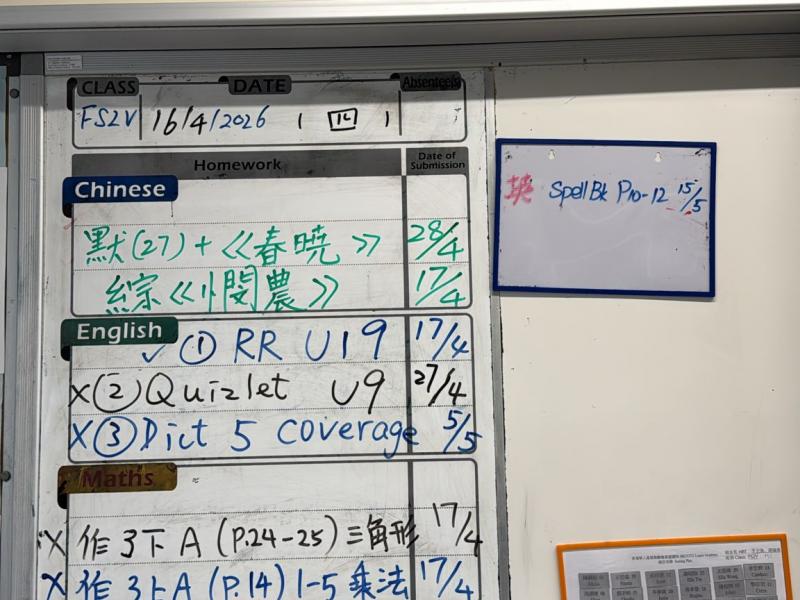 CLASS DATE Absentee(s)
FS2V 16/4/2026 (四)
Homework Date of Submission
Chinese
默(27)+《春曉》 28/4
綜《憫農》 17/4
English
✓ ① RR U19 17/4
X ② Quizlet U9 27/4
X ③ Dict 5 coverage 5/5
Maths
X 作3下A (P.24-25) 三角形 17/4
X 作3上A (P.14) 1-5 乘法 17/4
英 Spell Bk P10-12 15/5